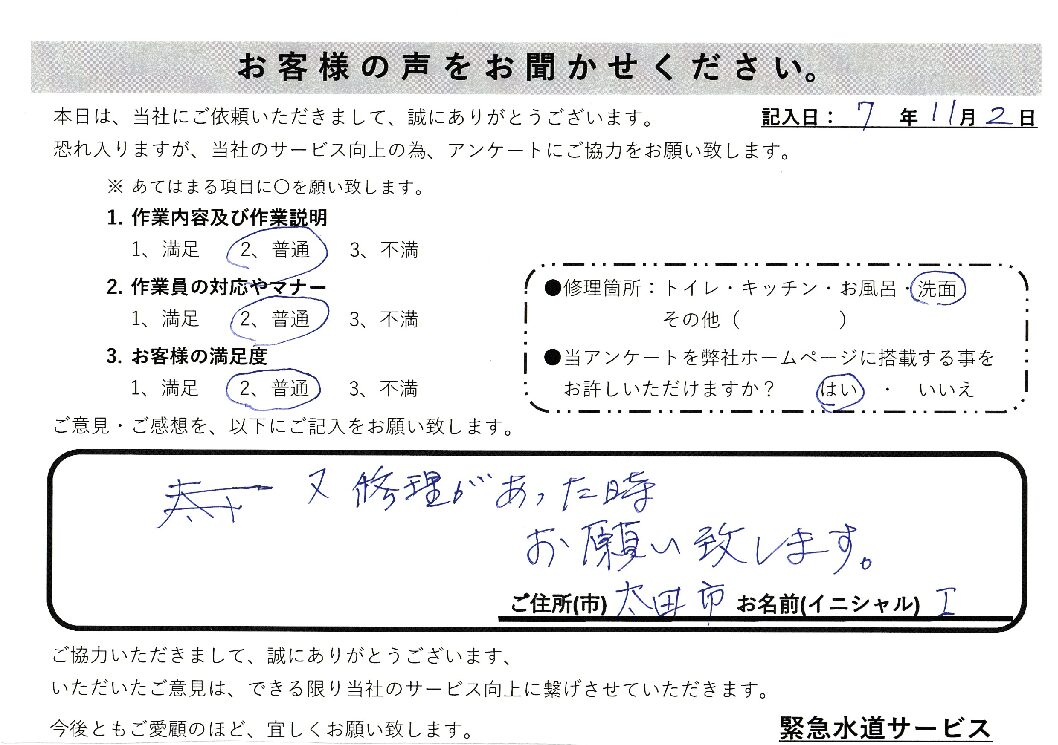 お客様の声をお聞かせください。
本日は、当社にご依頼いただきまして、誠にありがとうございます。 記入日：7年11月2日
恐れ入りますが、当社のサービス向上の為、アンケートにご協力をお願い致します。
※ あてはまる項目に〇を願い致します。
1. 作業内容及び作業説明
1、満足 2、普通 3、不満
2. 作業員の対応やマナー
1、満足 2、普通 3、不満
3. お客様の満足度
1、満足 2、普通 3、不満
●修理箇所：トイレ・キッチン・お風呂・洗面
その他（ ）
●当アンケートを弊社ホームページに搭載する事を
お許しいただけますか？ はい ・ いいえ
ご意見・ご感想を、以下にご記入をお願い致します。
又修理があった時
お願い致します。
ご住所(市) 太田市 お名前(イニシャル) I
ご協力いただきまして、誠にありがとうございます、
いただいたご意見は、できる限り当社のサービス向上に繋げさせていただきます。
今後ともご愛顧のほど、宜しくお願い致します。 緊急水道サービス